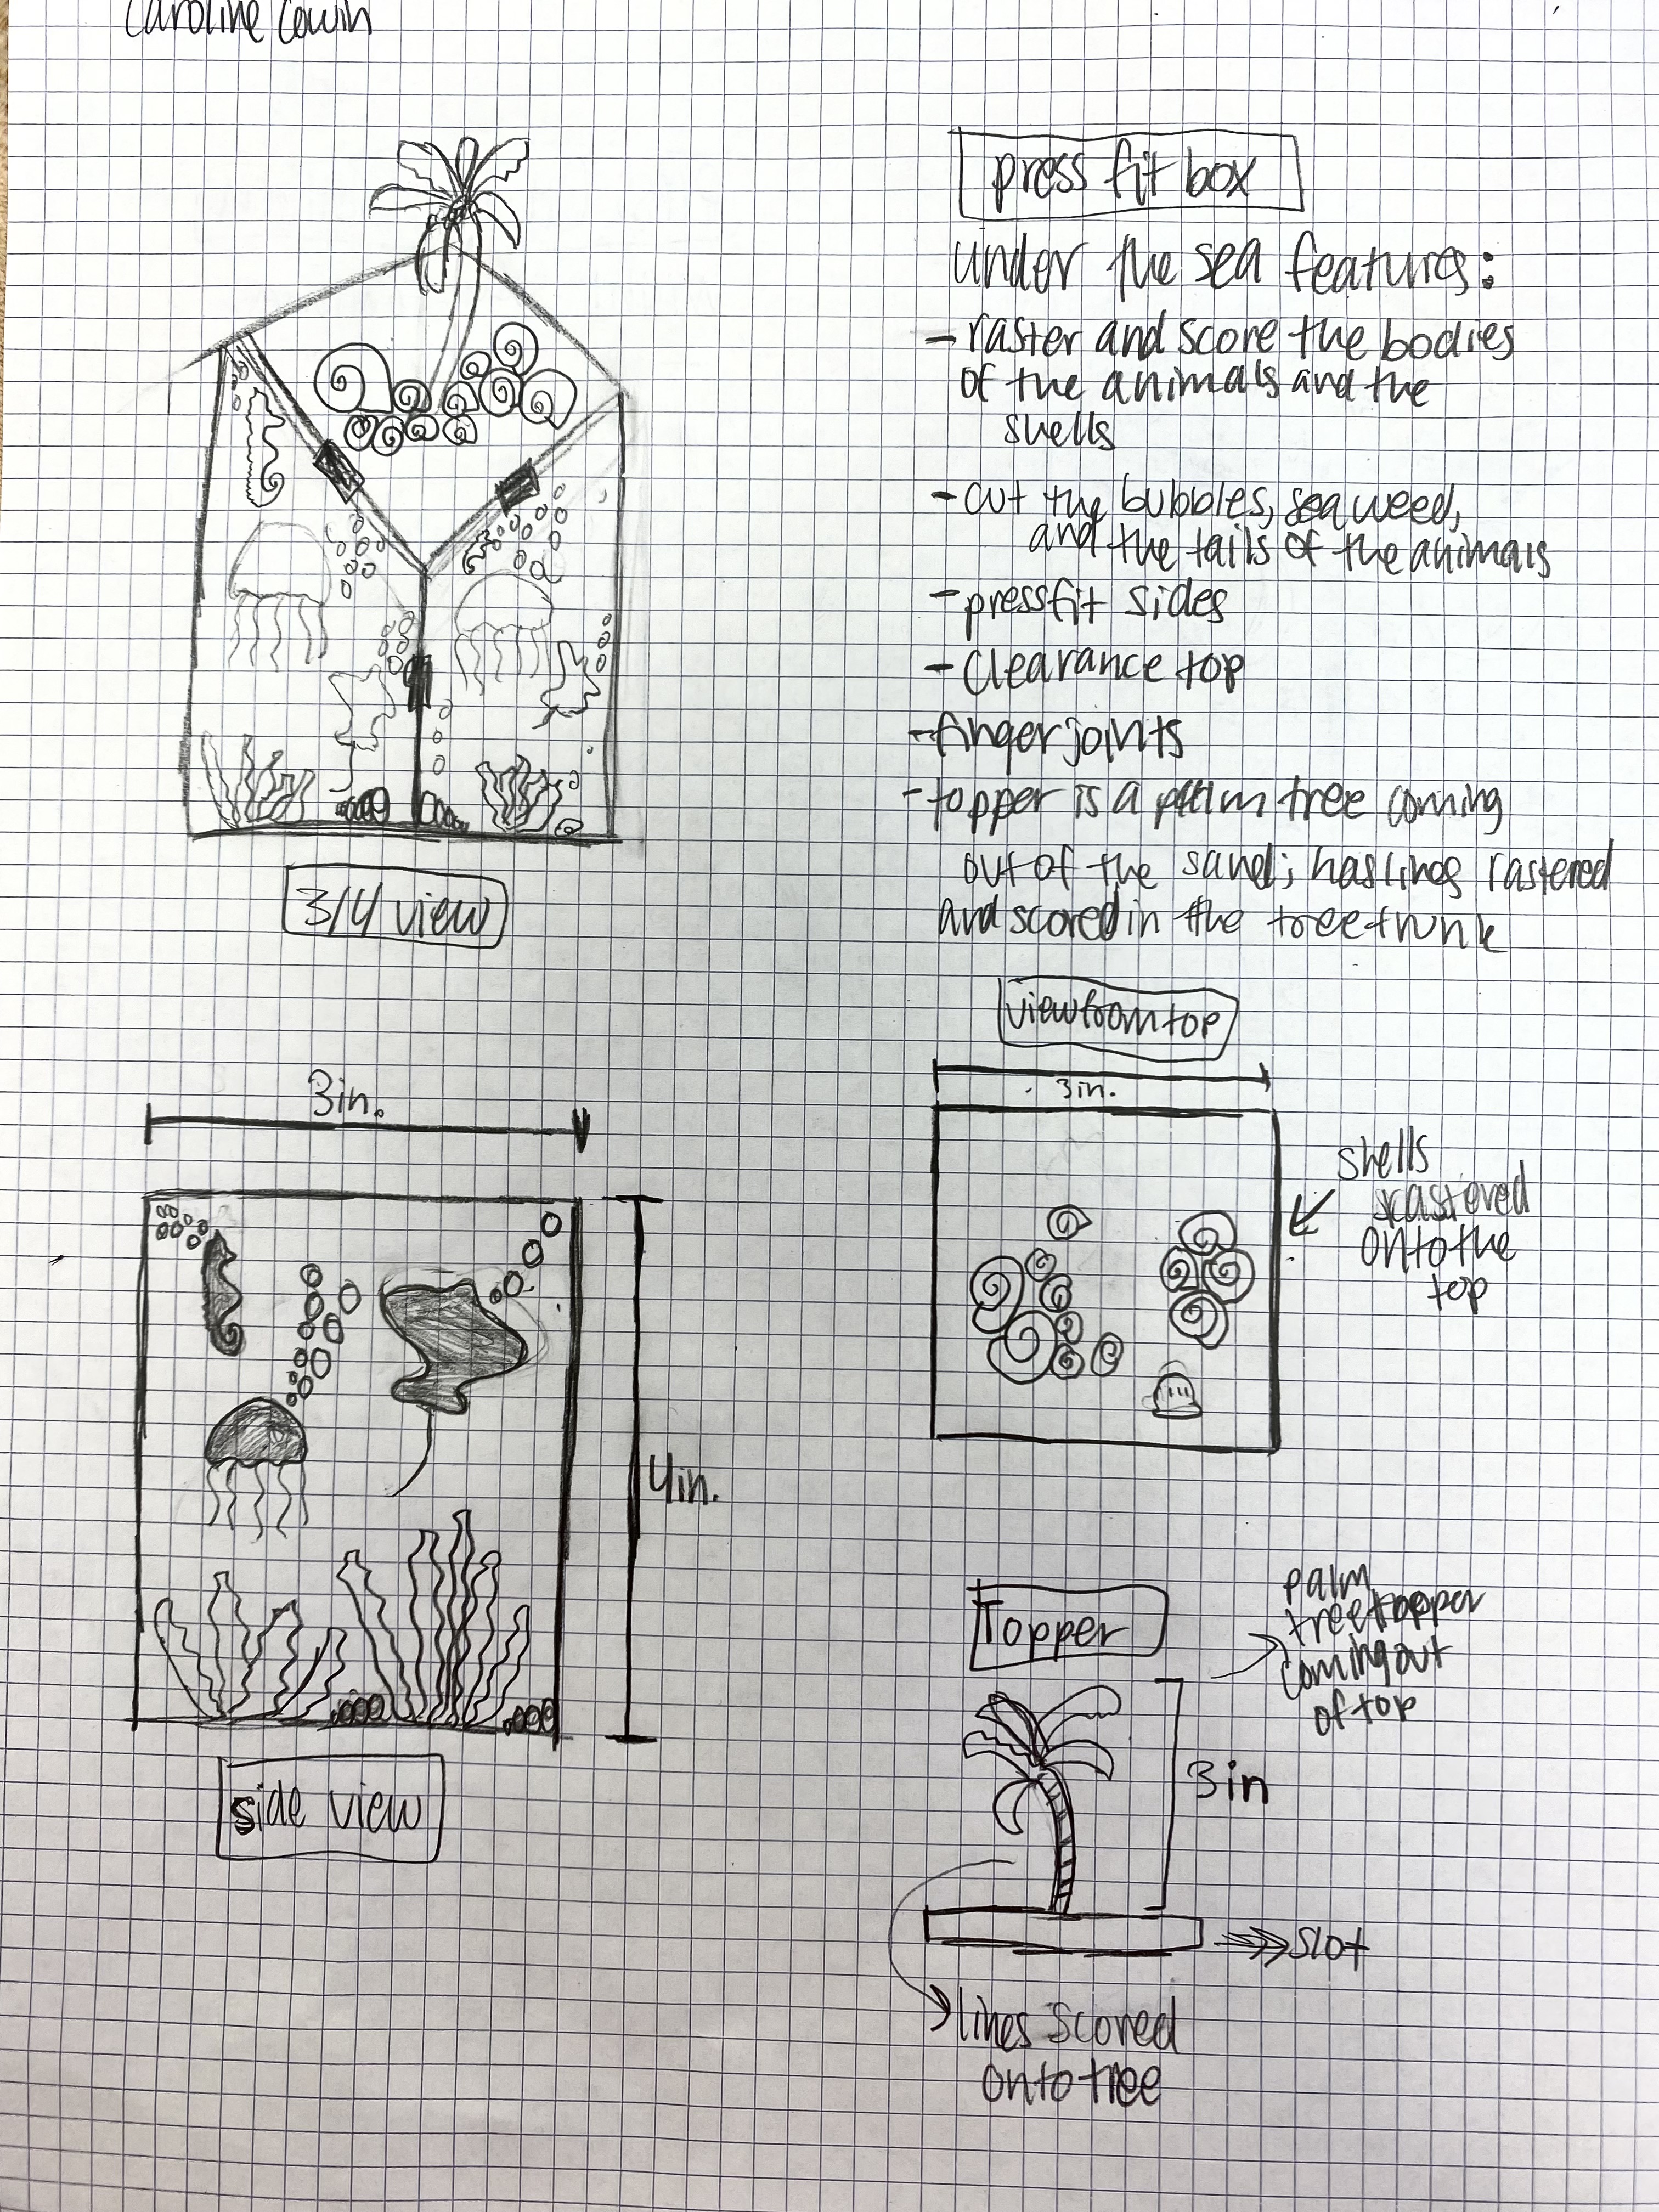 Caroline Cowin
press fit box
under the sea features:
- raster and score the bodies
of the animals and the
shells
- cut the bubbles, seaweed,
and the tails of the animals
- pressfit sides
- Clearance top
- finger joints
- topper is a palm tree coming
out of the sand; has lines rastered
and scored in the tree trunk
3/4 view
view from top
3in.
3in.
shells
rastered
onto the
top
4in.
side view
Topper
palm
tree topper
coming out
of top
3in
slot
lines scored
onto tree